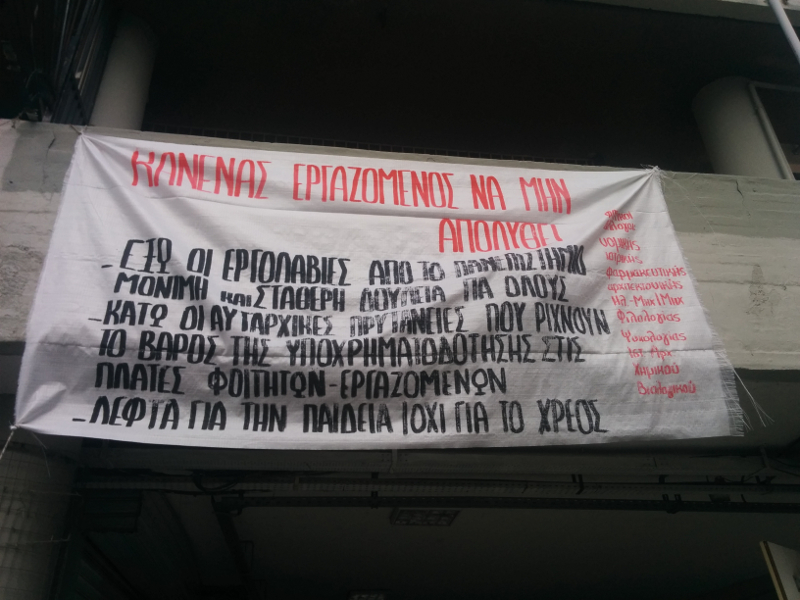 ΚΑΝΕΝΑΣ ΕΡΓΑΖΟΜΕΝΟΣ ΝΑ ΜΗΝ
ΑΠΟΛΥΘΕΙ
- ΕΞΩ ΟΙ ΕΡΓΟΛΑΒΙΕΣ ΑΠΟ ΤΟ ΠΑΝΕΠΙΣΤΗΜΙΟ
ΜΟΝΙΜΗ και ΣΤΑΘΕΡΗ ΔΟΥΛΕΙΑ ΓΙΑ ΟΛΟΥΣ
- ΚΑΤΩ ΟΙ ΑΥΤΑΡΧΙΚΕΣ ΠΡΥΤΑΝΕΙΕΣ ΠΟΥ ΡΙΧΝΟΥΝ
ΤΟ ΒΑΡΟΣ ΤΗΣ ΥΠΟΧΡΗΜΑΤΟΔΟΤΗΣΗΣ ΣΤΙΣ
ΠΛΑΤΕΣ ΦΟΙΤΗΤΩΝ-ΕΡΓΑΖΟΜΕΝΩΝ
- ΛΕΦΤΑ ΓΙΑ ΤΗΝ ΠΑΙΔΕΙΑ ΙΟΧΙ ΓΙΑ ΤΟ ΧΡΕΟΣ
νομικής
ιατρικής
Φαρμακευτικής
αρχιτεκτονικής
Ηλ-Μηχ/Μηχ
Φιλολογίας
Ψυχολογίας
Ιστ-Αρχ
Χημικού
Βιολογικού